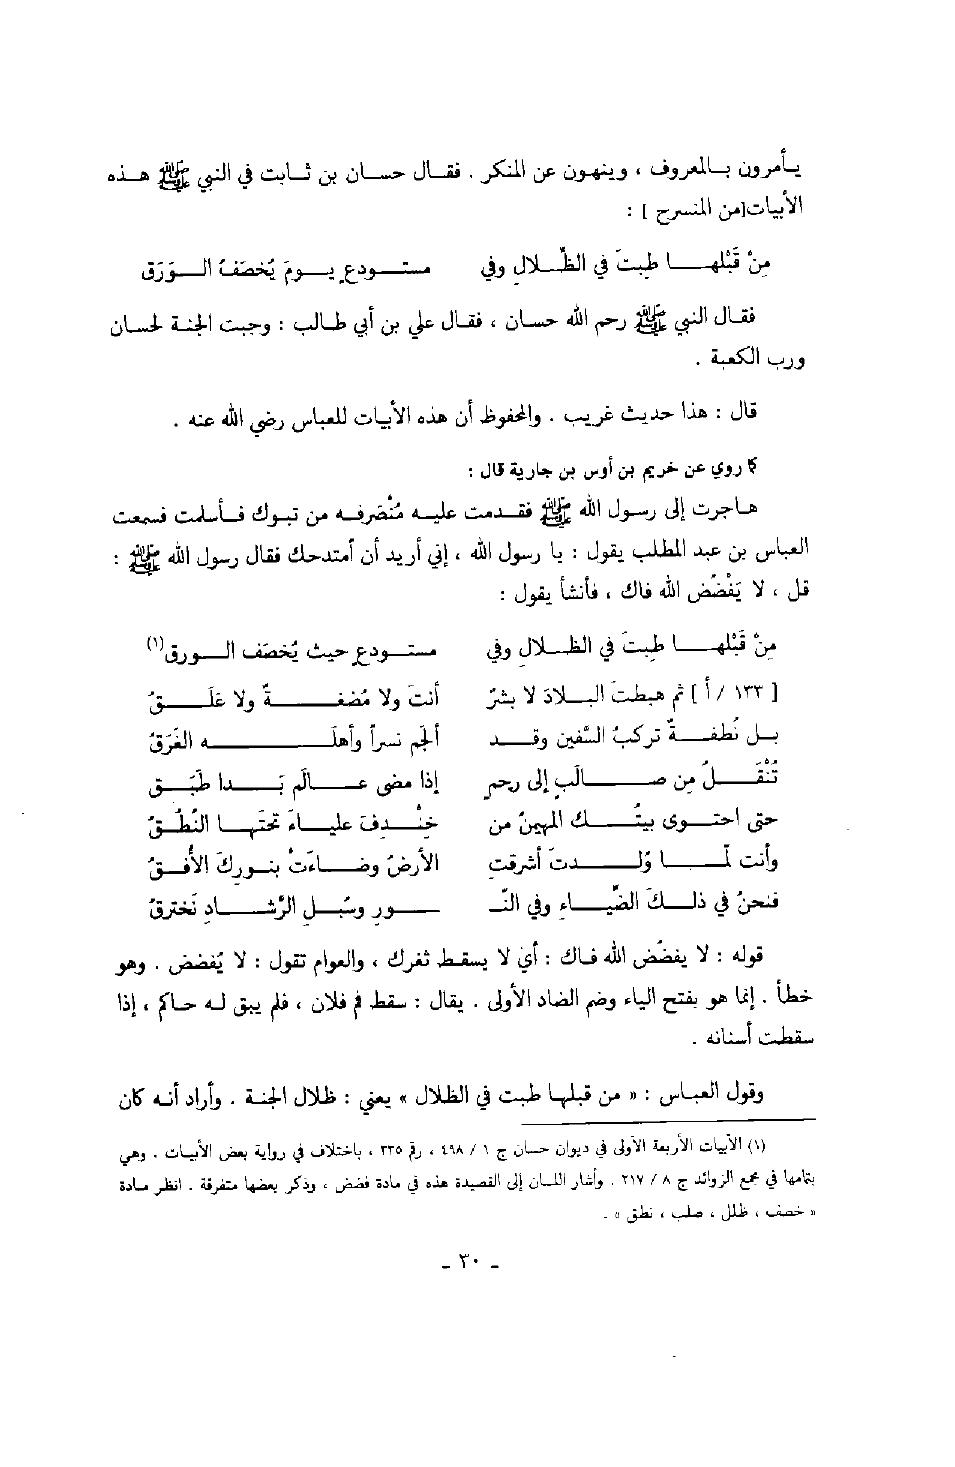 يأمرون بالمعروف ، وينهون عن المنكر . فقال حسان بن ثابت في النبي ﷺ هذه
الأبيات[من المنسرح ] :
مِنْ قَبْلهـا طبتَ في الظِّـلالِ وفي مستـودعٍ يـومَ يُخصَفُ الـوَرَق
فقال النبي ﷺ رحم الله حسان ، فقال علي بن أبي طالب : وجبت الجنة لحسان
ورب الكعبة .
قال : هذا حديث غريب . والمحفوظ أن هذه الأبيات للعباس رضي الله عنه .
كا روي عن خريم بن أوس بن جارية قال :
هاجرت إلى رسول الله ﷺ فقدمت عليه مُنْصَرفه من تبوك فأسلمت فسمعت
العباس بن عبد المطلب يقول : يا رسول الله ، إني أريد أن أمتدحك فقال رسول الله ﷺ :
قل ، لا يَفْضُض الله فاك ، فأنشأ يقول :
مِنْ قَبْلهـا طِبتَ في الظـلالِ وفي مستـودعٍ حيث يُخصَف الـورق(١)
[ ١٣٣ / أ ] ثم هبطتَ البـلادَ لا بشرٌ أنتَ ولا مُضغـةٌ ولا عَلَـقُ
بـل نُطفـةٌ تركبُ السَّفين وقـد ألجم نسراً وأهلَـه الغَرَقُ
تُنْقَـلُ مِن صـالَبٍ إلى رحمٍ إذا مضى عـالَم بَـدا طَبَـق
حتى احتـوى بيتُـك المهينُ من خِنْـدِفَ عليـاءَ تحتَهـا النُّطُـقُ
وأنت لمـا وُلـدتَ أشرقتِ الأرضُ وضـاءَتْ بنـورِكَ الأفُـق
فنحنُ في ذلـكَ الضِّيـاءِ وفي النّـ ـورِ وسُبـلِ الرَّشـادِ نَخترقُ
قوله : لا يفضُض الله فاك : أيْ لا يسقط ثغرك ، والعوام تقول : لا يُفضض . وهو
خطأ . إنما هو بفتح الياء وضم الضاد الأولى . يقال : سقط فم فلان ، فلم يبق له حاكم ، إذا
سقطت أسنانه .
وقول العباس : « من قبلها طبت في الظلال » يعني : ظلال الجنة . وأراد أنه كان
(١) الأبيات الأربعة الأولى في ديوان حسان ج ١ / ٤٩٨ ، رقم ٣٣٥ ، باختلاف في رواية بعض الأبيات . وهي
بتمامها في مجمع الزوائد ج ٨ / ٢١٧ . وأشار اللسان إلى القصيدة هذه في مادة فضض ، وذكر بعضها متفرقة . انظر مادة
« خصف ، ظلل ، صلب ، نطق » .
- ٣٠ -